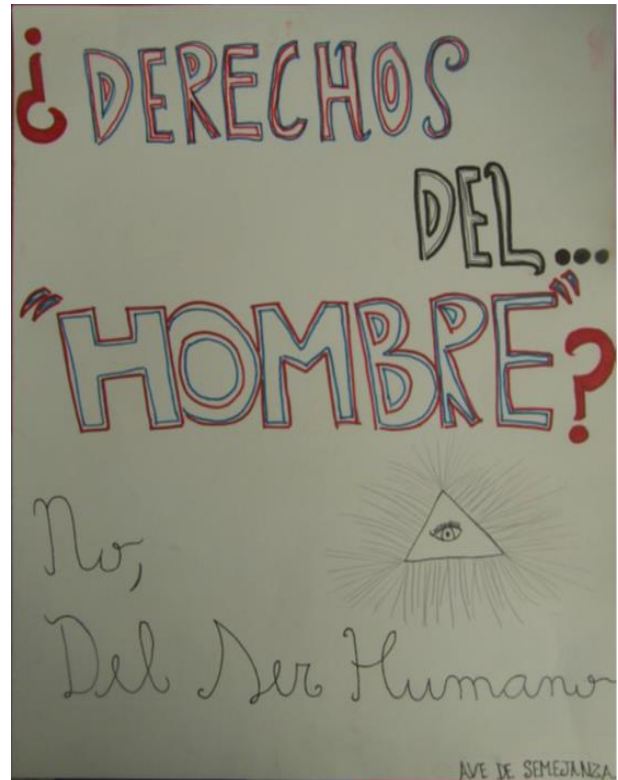 ¿DERECHOS
DEL...
"HOMBRE"?
No,
Del Ser Humano
AVE DE SEMEJANZA